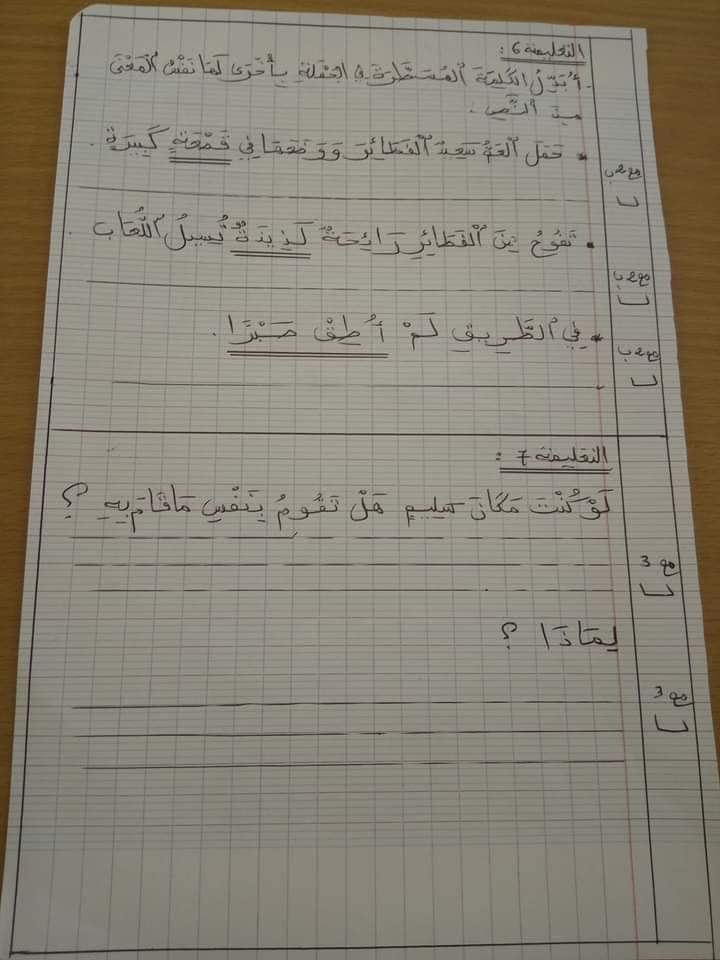 التعليمة 6 :
أُبَدِّلُ الكَلِمَةَ ٱلْمُسَطَّرَةَ فِي الجُمْلَةِ بِأُخْرَى لَهَا نَفْسُ ٱلْمَعْنَى
مِنَ ٱلنَّصِ .
• حَمَلَ ٱلْعَمُّ سَعِيدُ ٱلْفَطَائِرَ وَوَضَعَهَا فِي قَصْعَةٍ كَبِيرَةٍ .
مع2ب
• تَفُوحُ مِنَ ٱلْفَطَائِرِ رَائِحَةٌ لَذِيذَةٌ تُسِيلُ ٱللُّعَابَ .
مع2ب
• فِي ٱلطَّرِيقِ لَمْ أُطِقْ صَبْرًا .
مع2ب
التعليمة 7 :
لَوْ كُنْتَ مَكَانَ سَلِيمٍ هَلْ تَقُومُ بِنَفْسِ مَا قَامَ بِهِ ؟
مع 3
لِمَاذَا ؟
مع 3